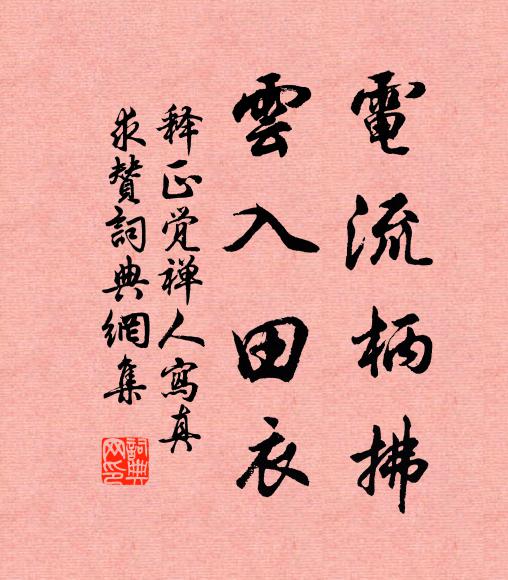 電流柄拂
雲入田衣
释正觉禅人寫真
求贊詞典網集
詞典
网印